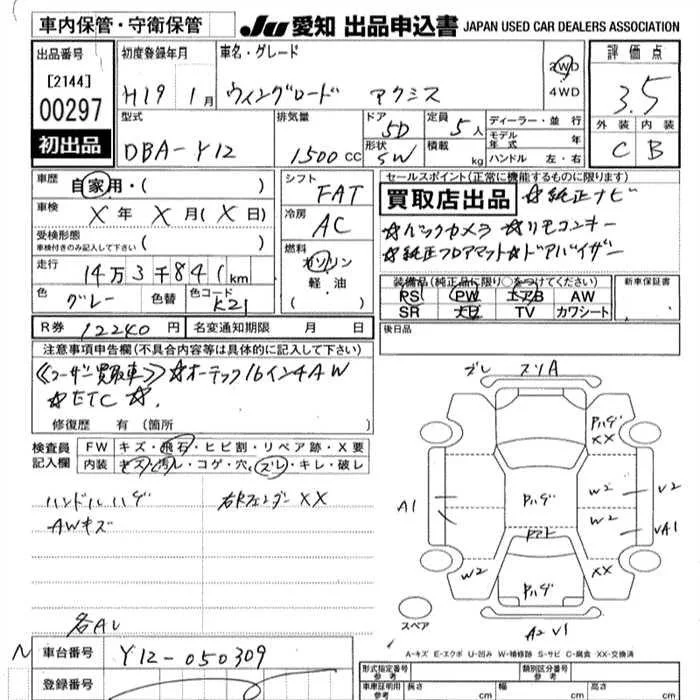 車内保管・守衛保管
JU 愛知 出品申込書 JAPAN USED CAR DEALERS ASSOCIATION
出品番号
[2144]
00297
初出品
初度登録年月
H19 1月
車名・グレード
ウィングロード アクシス
2WD
4WD
評価点
3.5
外装 内装
C B
型式
DBA-Y12
排気量
1500 cc
ドア
5D
形状
SW
定員
5人
積載
kg
ディーラー・並行
モデル年式 年
ハンドル 左・右
車歴 自家用・( )
車検 X年 X月(X日)
受検形態
車検付きのみ記入して下さい ( )
走行 14万3千841km
色 グレー 色替 色コード K21
シフト
FAT
冷房
AC
燃料
ガソリン
軽油
( )
セールスポイント(正常に機能するものに限ります)
買取店出品 ☆純正ナビ
☆バックカメラ ☆リモコンキー
☆純正フロアマット☆ドアバイザー
装備品(純正品に限り○をつけてください)
PS PW エアB AW
SR ナビ TV カワシート
新車保証書
後日品
R券 12240円 名変通知期限 月 日
注意事項申告欄(不具合内容等は具体的に記入して下さい)
《ユーザー買取車》☆オーテック16インチAW
☆ETC☆.
修復歴 有(箇所 )
検査員記入欄
FW キズ・飛石・ヒビ割・リペア跡・X要
内装 キズ・汚レ・コゲ・穴・ズレ・キレ・破レ
ハンドルハゲ 右Fフェンダー XX
AWキズ
各AU
N
車台番号 Y12-050309
登録番号
ズレ スリA
Pハゲ
XX
A1
Pハゲ
W2
V2
W2
VA1
W2
XX
Pハゲ
A2 V1
スペア
A-キズ E-エクボ U-凹み W-補修跡 S-サビ C-腐食 XX-交換済
形式指定番号
参考
類別区分番号
参考
車庫証明用
参考
長さ cm
幅 cm
高さ cm